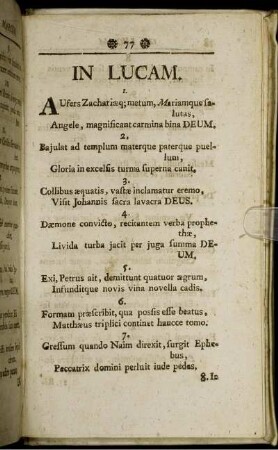 ❋ 77 ❋
IN LUCAM.
1.
AUfers Zachariæq; metum, Mariamque sa-
lutas,
Angele, magnificant carmina bina DEUM.
2.
Bajulat ad templum materque paterque puel-
lum,
Gloria in excelsis turma superna canit.
3.
Collibus æquatis, vaste inclamatur eremo,
Visit Johannis sacra lavacra DEUS.
4.
Dæmone convicto, recitantem verba prophe-
thæ,
Livida turba jacit per juga summa DE-
UM.
5.
Exi, Petrus ait, demittunt quatuor ægrum,
Infunditque novis vina novella cadis.
6.
Formam præscribit, qua possis esse beatus,
Matthæus triplici continet hancce tomo.
7.
Gressum quando Naim direxit, surgit Ephe-
bus,
Peccatrix domini perluit inde pedes.
8. In